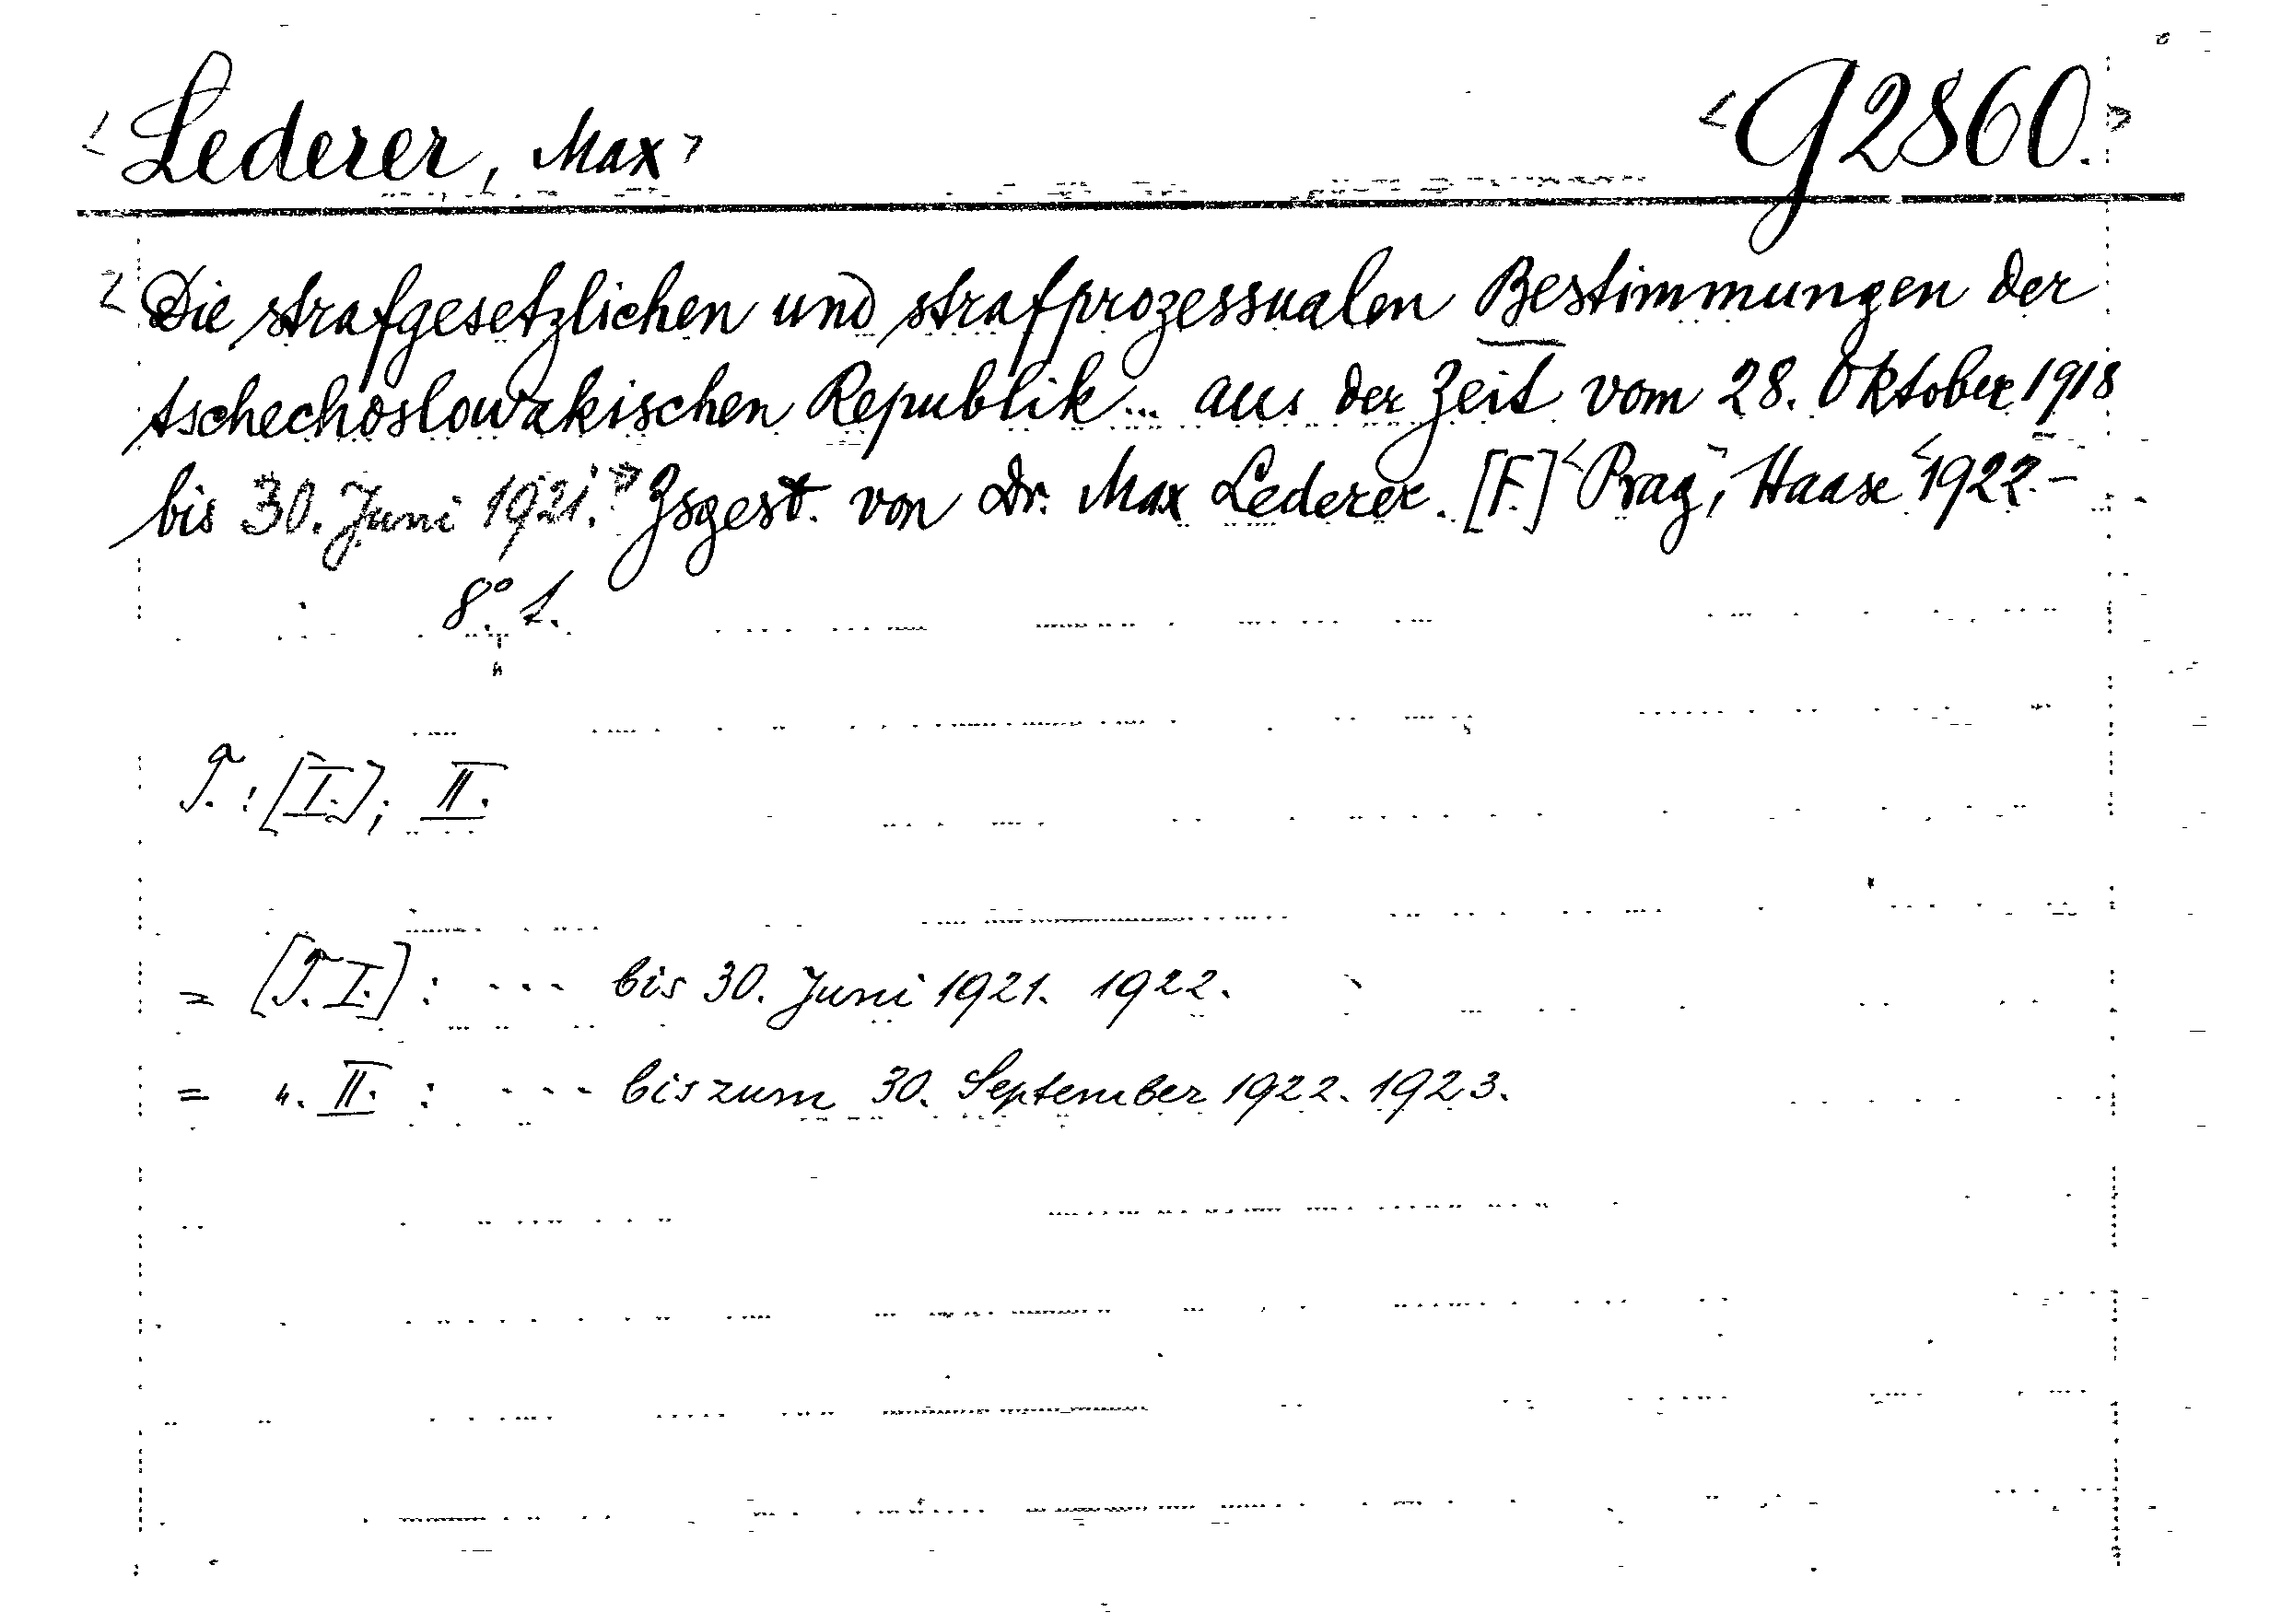 <Lederer, Max>
<G2860.>
<Die strafgesetzlichen und strafprozessualen Bestimmungen der
tschechoslowakischen Republik... aus der Zeit vom 28. Oktober 1918
bis 30. Juni 1921.> Zsgest. von Dr. Max Lederer. [F.] <Prag>, Haase <1922.-
8° 1.
T.: [I.]; II.
= [T. I.]: --- bis 30. Juni 1921. 1922.
= ". II. : --- bis zum 30. September 1922. 1923.